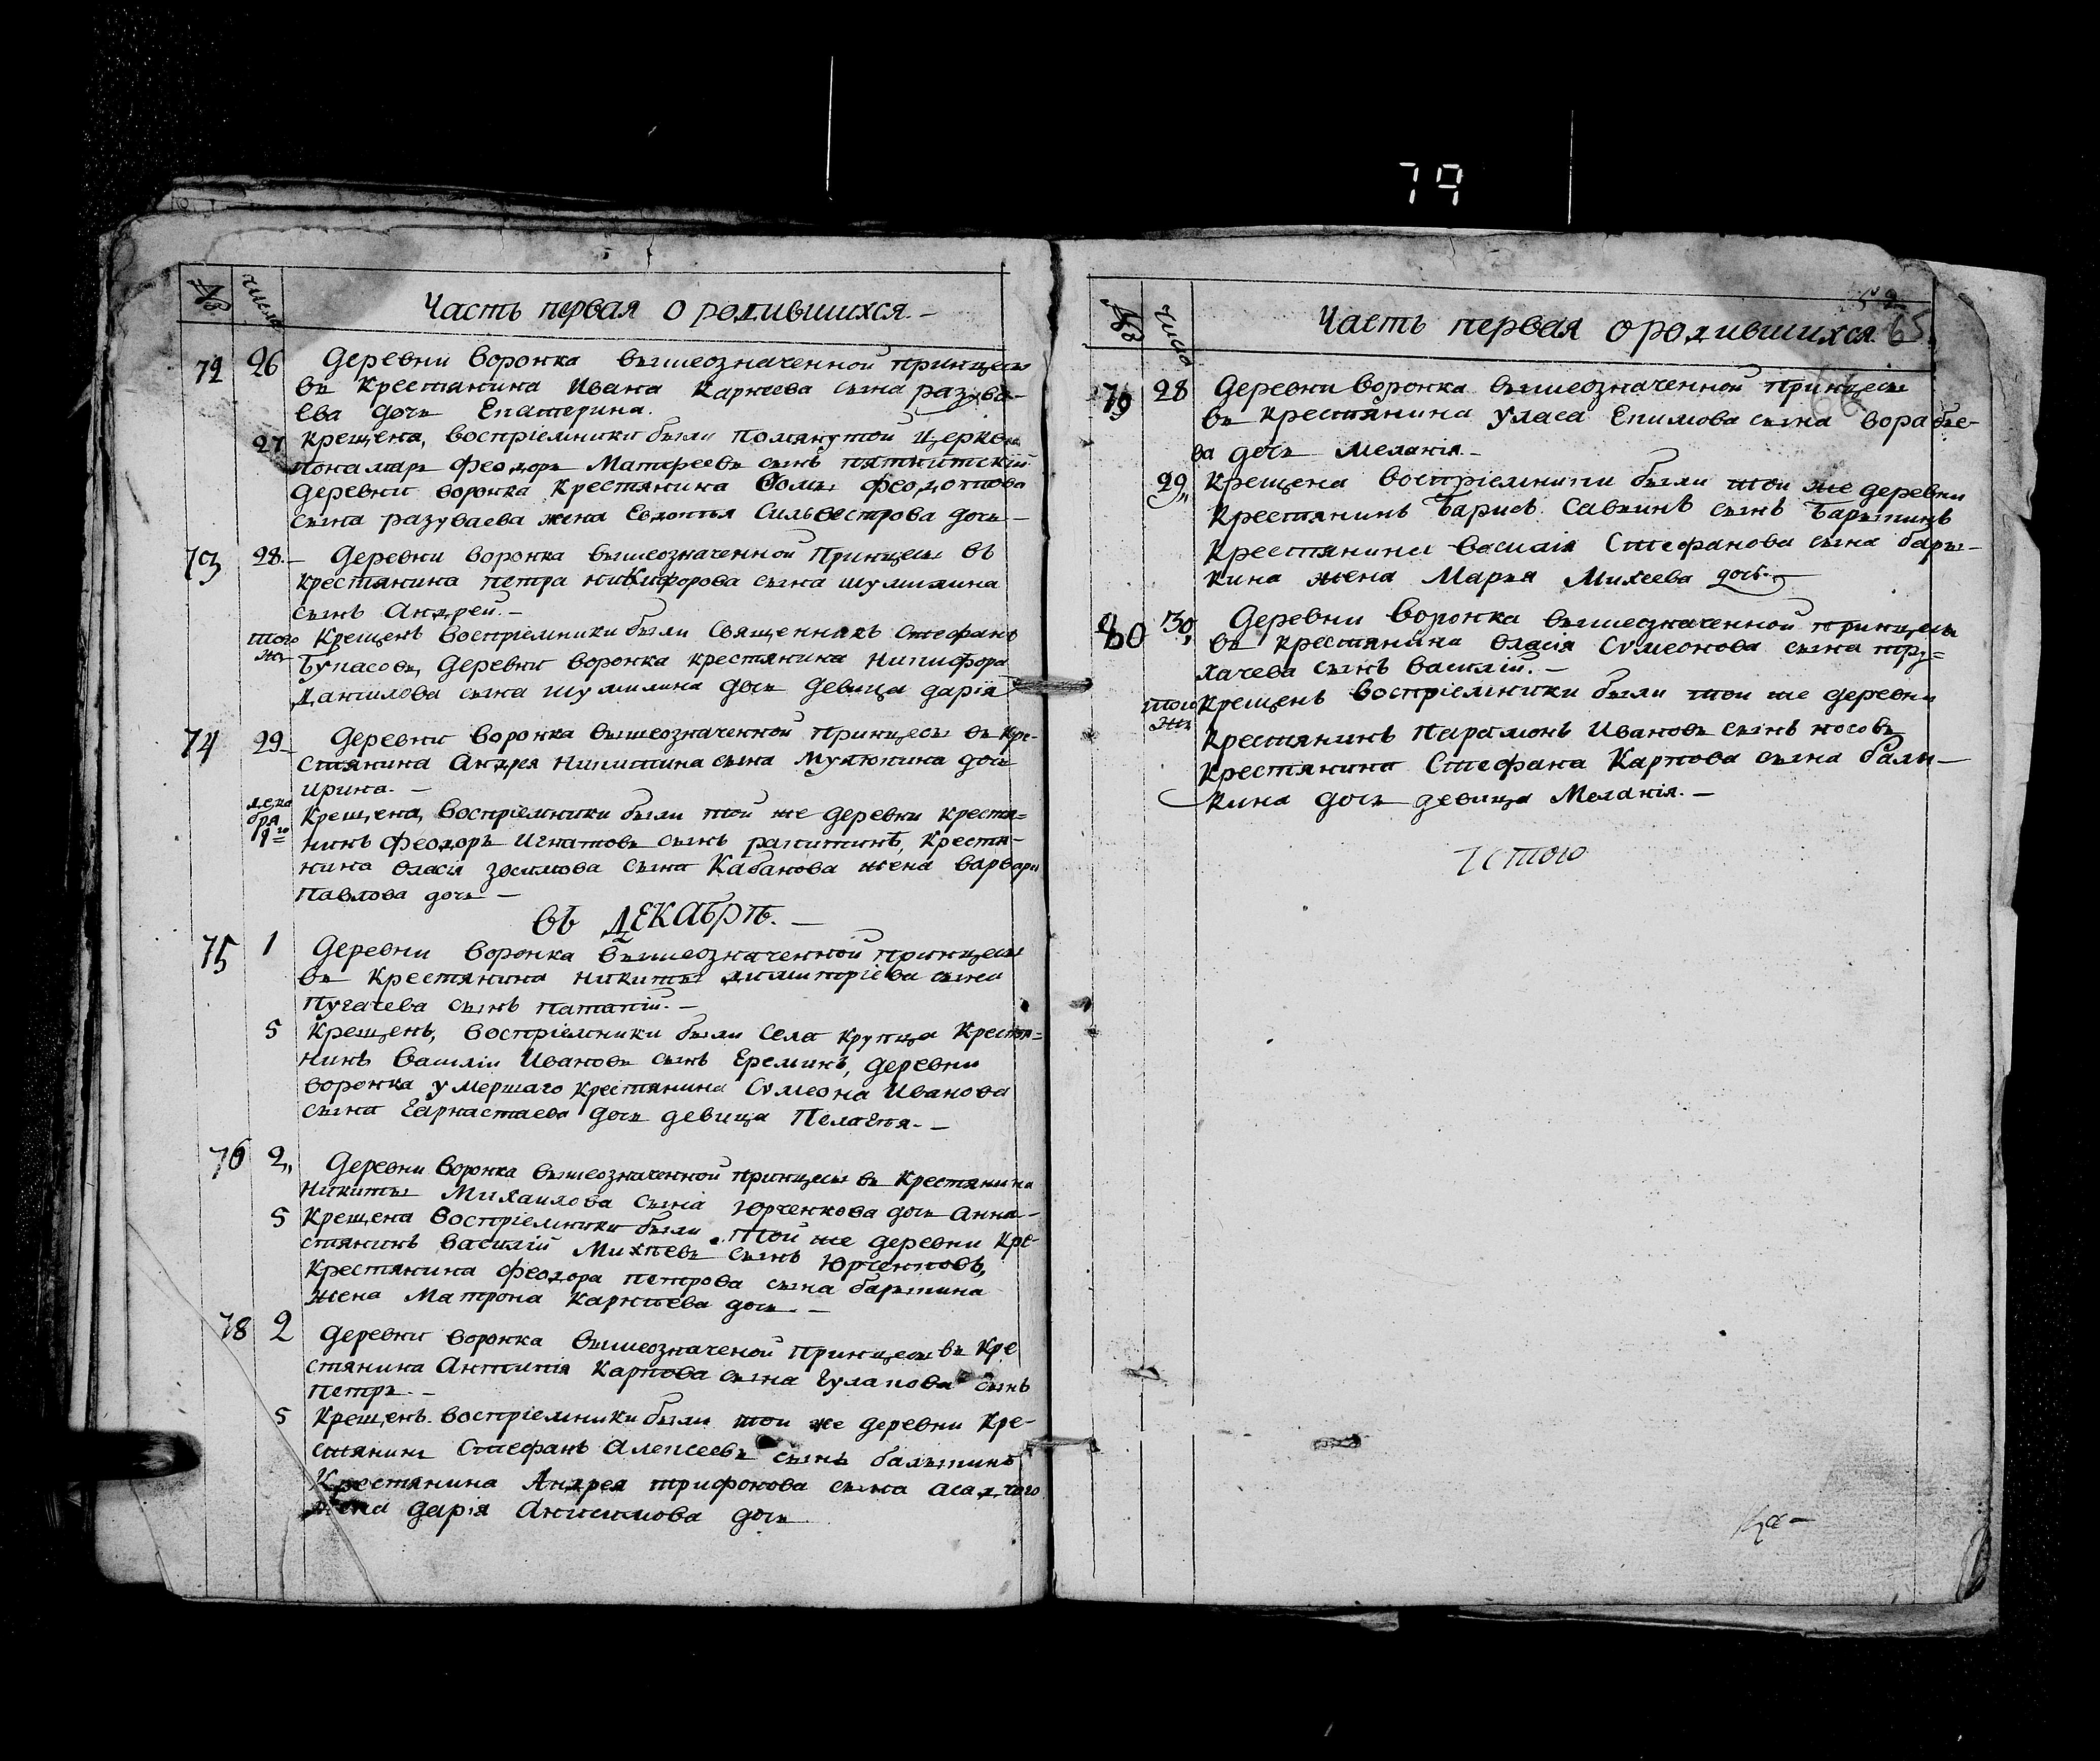 79
№ числа Часть первая о родившихся. —
72 26 Деревни воронка вышеозначенной принцесы
въ крестянина Ивана Карнеева сына разува-
ева дочь Екатерина.
27 крещена, воспріемники были помянутой церкви
понамарь феодоръ Матфеевъ сынъ пятнитскій
деревни воронка крестянина Фомы феодотова
сына разуваева жена Евдокья Сильвестрова дочь —
73 28. — Деревни воронка вышеозначенной принцесы въ
крестянина петра никифорова сына шумилина
сынъ Андрей. —
того же Крещенъ воспріемники были священникъ стефанъ
деревни воронка крестянина никифора
Данилова сына шумилина дочь девица дарія
74 29 Деревни воронка вышеозначенной принцесы въ кре-
стянина Андрея никитина сына дочь
ирина. —
дека бря 1го Крещена, воспріемники были той же деревни крестя=
нинъ феодоръ Игнатовъ сынъ ракитинъ, крестя-
нина власа зосимова сына Кабанова жена варвара
павлова дочь —
въ ДЕКАБРѢ. —
75 1 Деревни воронка вышеозначенной принцесы
въ крестянина никиты димитріева сына
пугачева сынъ патапій. —
5 Крещенъ, воспріемники были села крупца крестя=
нинъ василіи Ивановъ сынъ Ереминъ, деревни
воронка умершаго крестянина Сѵмеона Иванова
сына дочь девица Пелагея. —
76 2„ Деревни воронка вышеозначенной принцесы въ крестянина
никиты Михаилова сына Юрченкова дочь анна —
5 Крещена воспріемники были той же деревни кре-
стянинъ василій Михѣевъ сынъ Юрченковъ,
крестянина феодора петрова сына барытина
жена Матрона Карнѣева дочь. —
78 2 Деревни воронка вышеозначеной принцесы въ кре
стянина Антипія Карпова сына гулакова сынъ
петръ. —
5 Крещенъ. воспріемники были той же деревни кре-
стянинъ Стефанъ алексеевъ сынъ балыкинъ
Крестянина Андрея трифонова сына асадчого
жена дарія Анисимова дочь
65
№ число Часть первая о родившихся
79 28 Деревни воронка вышеозначенной принцесы
въ крестянина уласа Епимова сына ворабье-
ва дочь меланія —
29„ Крещена воспріемники были той же деревни
крестянинъ Барисъ Саввинъ сынъ Барыкинъ
крестянина василія Стефанова сына бары-
кина жена Марья Михеева дочь. —
80 30„ Деревни воронка вышеозначенной принцесы
въ крестянина власія Сѵмеонова сына тру=
хачева сынъ василій. —
того же крещенъ воспріемники были той же деревни
крестянинъ парамонъ Ивановъ сынъ носовъ
крестянина Стефана Карпова сына балы-
кина дочь девица Меланія. —